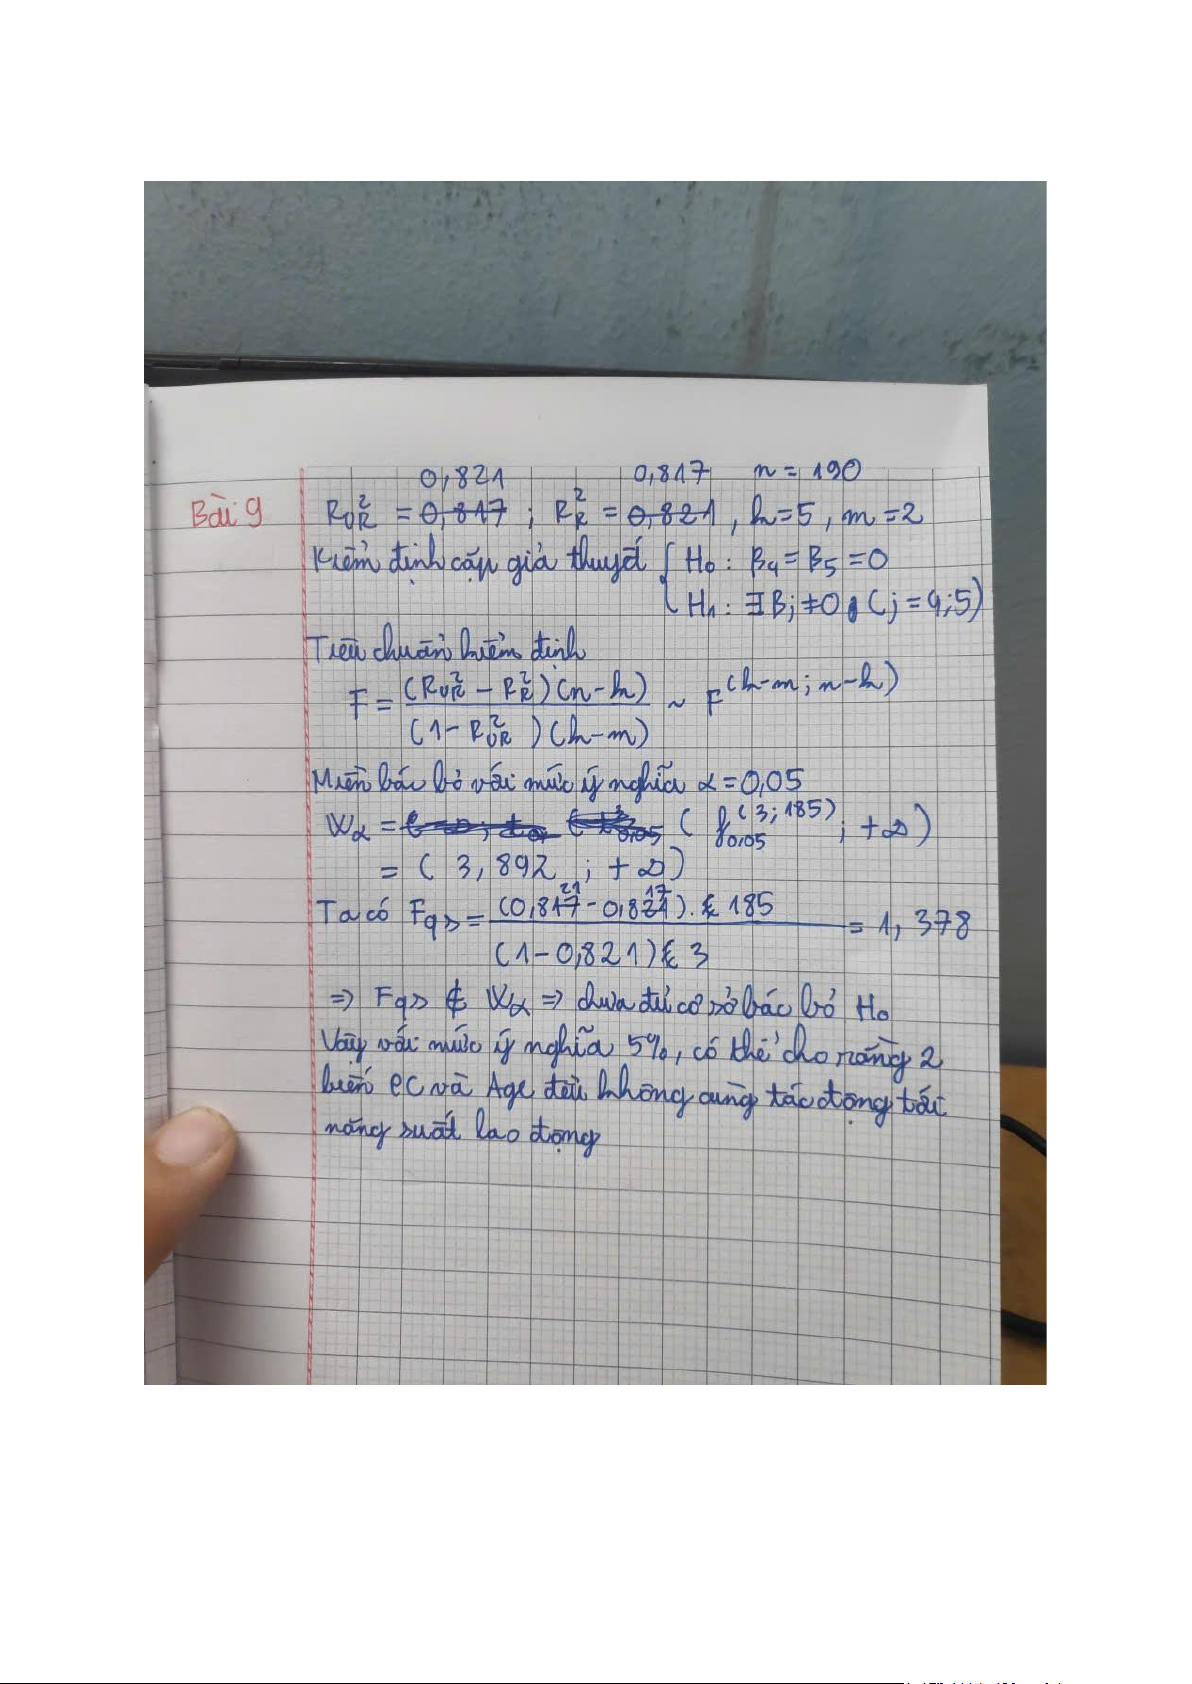 0,821 0,817 n = 190
Bài 9 R²UR = 0,817 ; R²R = 0,821 , k=5 , m=2
Kiểm định cặp giả thuyết { H₀ : β₄ = β₅ = 0
H₁ : ∃ βj ≠ 0 , (j = 4;5)
Tiêu chuẩn kiểm định
F = (R²UR - R²R)(n-k) / (1 - R²UR)(k-m) ~ F^(k-m; n-k)
Miền bác bỏ với mức ý nghĩa α = 0,05
Wα = ( f0,05^(3; 185) ; +∞)
= ( 3,892 ; +∞)
Ta có Fqs = (0,821 - 0,817). 185 / (1 - 0,821) 3 = 1,378
=> Fqs ∉ Wα => chưa đủ cơ sở bác bỏ H₀
Vậy với mức ý nghĩa 5%, có thể cho rằng 2
biến PC và Age đều không cùng tác động tới
năng suất lao động